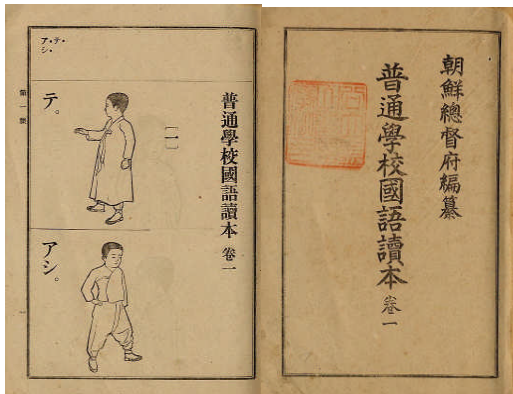 朝鮮總督府編纂
普通學校國語讀本 卷一
普通學校國語讀本 卷一
〔一〕
テ。
アシ。
ア・テ・
シ・